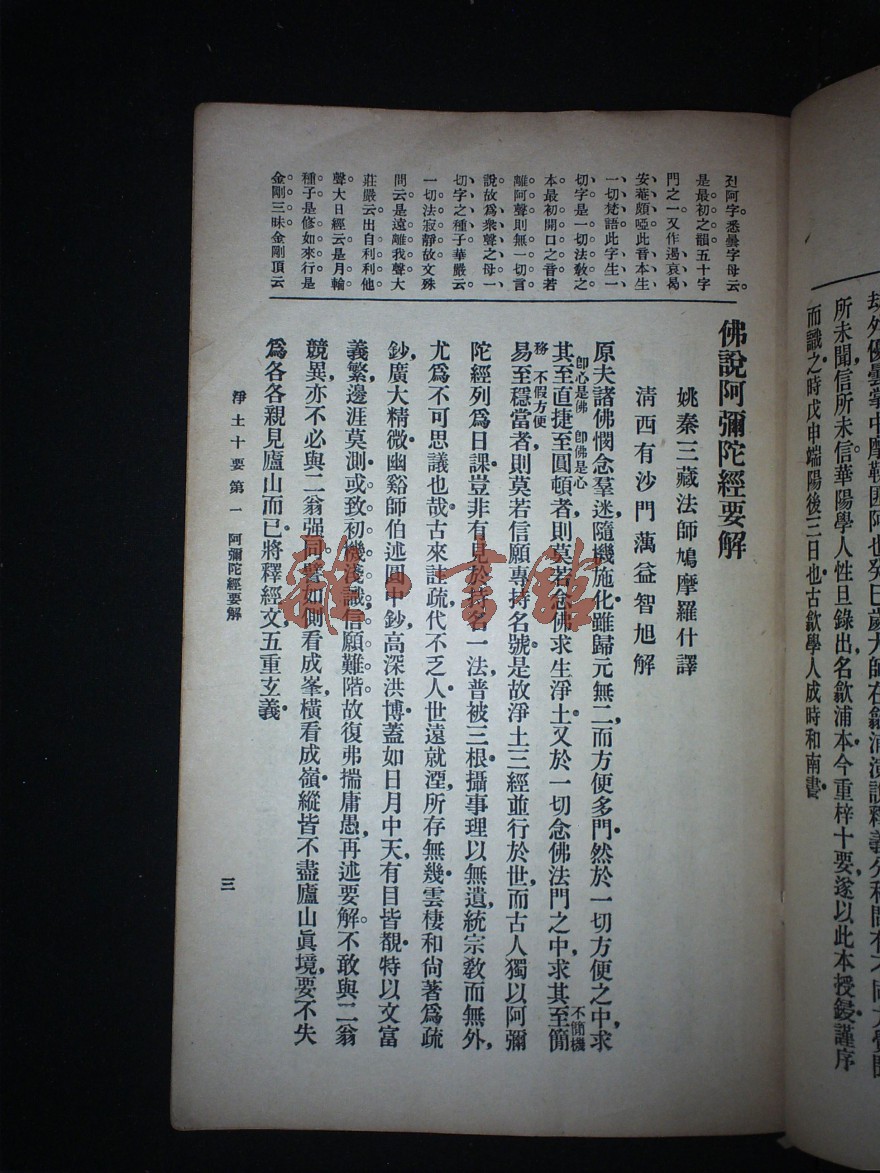 所未聞信所未信華陽學人性旦錄出名歙浦本今重梓十要遂以此本授鋟謹序
而識之時戊申端陽後三日也古歙學人成時和南書
阿字悉曇字母云
是最初之韻五十字
門之一又作遏哀曷
安菴頗啞此音本生
一切梵語此字生一
切字是一切法教之
本最初開口之音若
離阿聲則無一切言
說故爲衆聲之母一
切字之種子華嚴云
一切法寂靜故文殊
問云是遠離我聲大
莊嚴云出自利利他
聲大日經云是月輪
種子是修如來行是
金剛三昧金剛頂云
佛說阿彌陀經要解
姚秦三藏法師鳩摩羅什譯
清西有沙門蕅益智旭解
原夫諸佛憫念羣迷，隨機施化，雖歸元無二，而方便多門。然於一切方便之中，求
其至直捷卽心是佛至圓頓卽佛是心者，則莫若念佛求生淨土。又於一切念佛法門之中，求其至簡不簡機
務易不假方便至穩當者，則莫若信願專持名號。是故淨土三經並行於世，而古人獨以阿彌
陀經列爲日課，豈非有見於持名一法，普被三根，攝事理以無遺，統宗敎而無外，
尤爲不可思議也哉。古來註疏，代不乏人，世遠就湮，所存無幾。雲棲和尙著爲疏
鈔，廣大精微，幽谿師伯述圓中鈔，高深洪博，蓋如日月中天，有目皆覩。特以文富
義繁，邊涯莫測，或致初機淺識，信願難階。故復弗揣庸愚，再述要解。不敢與二翁
競異，亦不必與二翁强同。譬如側看成峯，橫看成嶺，縱皆不盡廬山眞境，要不失
爲各各親見廬山而已。將釋經文，五重玄義。
淨土十要第一 阿彌陀經要解
三